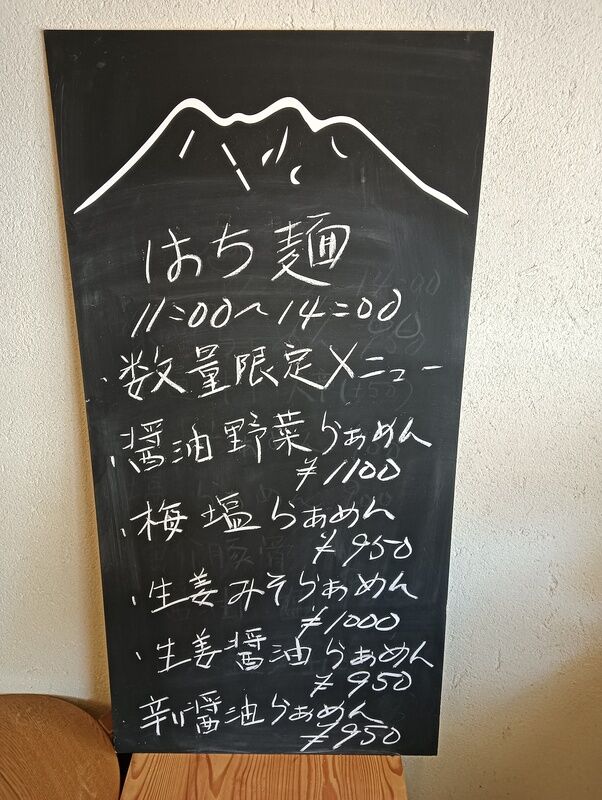 はち麺
11:00〜14:00
・数量限定メニュー
・醤油野菜らぁめん
¥1100
・梅塩らぁめん
¥950
・生姜みそらぁめん
¥1000
・生姜醤油らぁめん
¥950
辛い醤油らぁめん
¥950